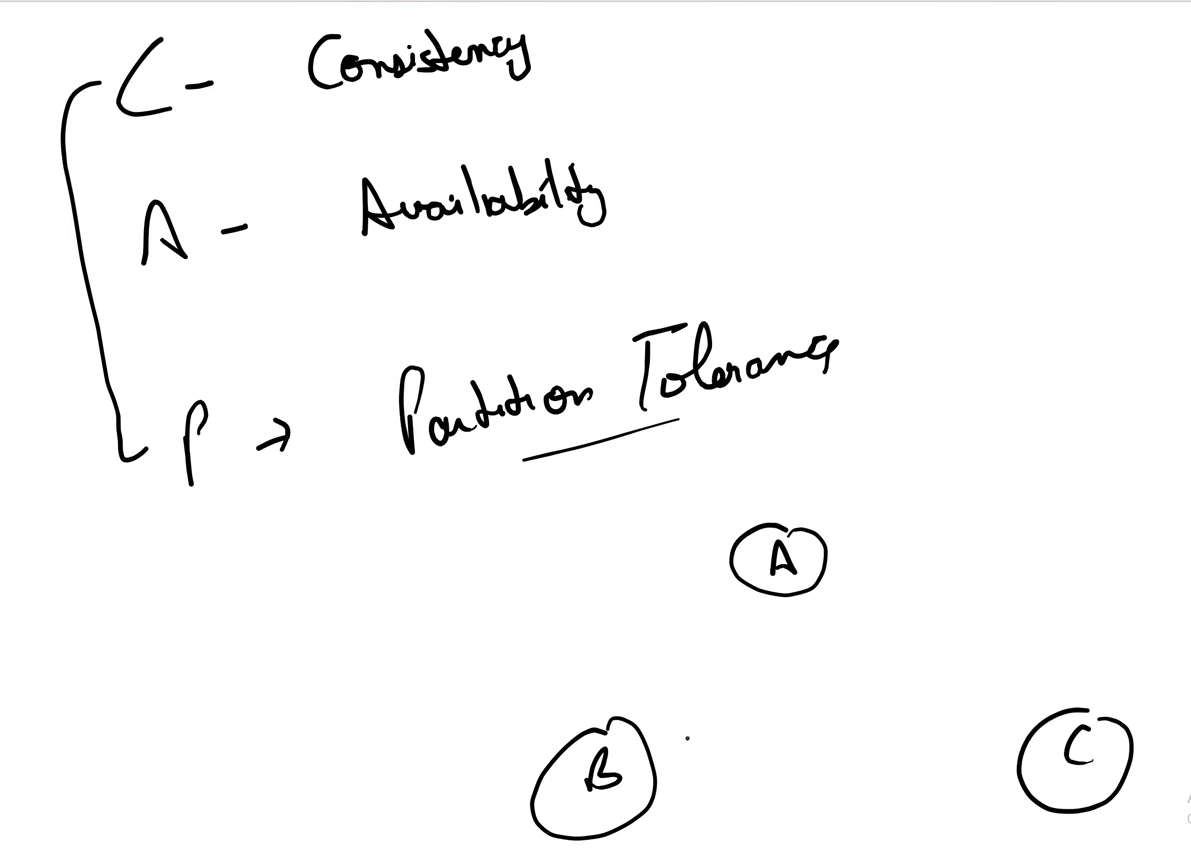 C - Consistency
A - Availability
P → Partition Tolerance
A
B
C